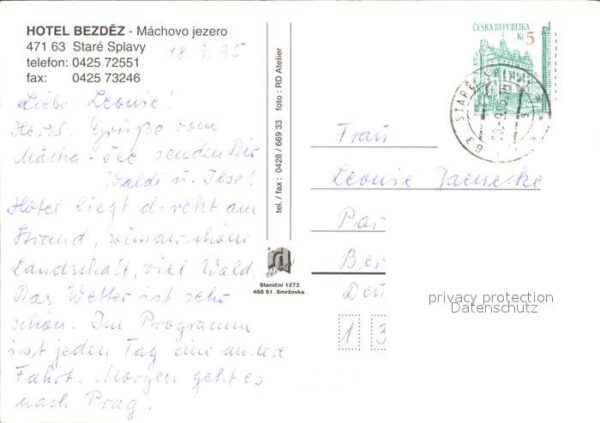 HOTEL BEZDĚZ - Máchovo jezero
471 63 Staré Splavy
telefon: 0425 72551
fax: 0425 73246
Liebe Leonie!
Herzl. Grüße vom
Mácha-See senden Dir
Waldi u. Ilse!
Hotel liegt direkt am
Strand, wunderschöne
Landschaft, viel Wald.
Das Wetter ist sehr
schön. Im Programm
ist jeden Tag eine andere
Fahrt. Morgen geht es
nach Prag.
tel./fax: 0428 / 669 33 foto: RD Atelier
Staniční 1273
468 51 Smržovka
ČESKÁ REPUBLIKA
Kč 5
STARÉ SPLAVY
Frau
Leonie Jaenecke
Par
Ber
Deu
1 3
privacy protection
Datenschutz